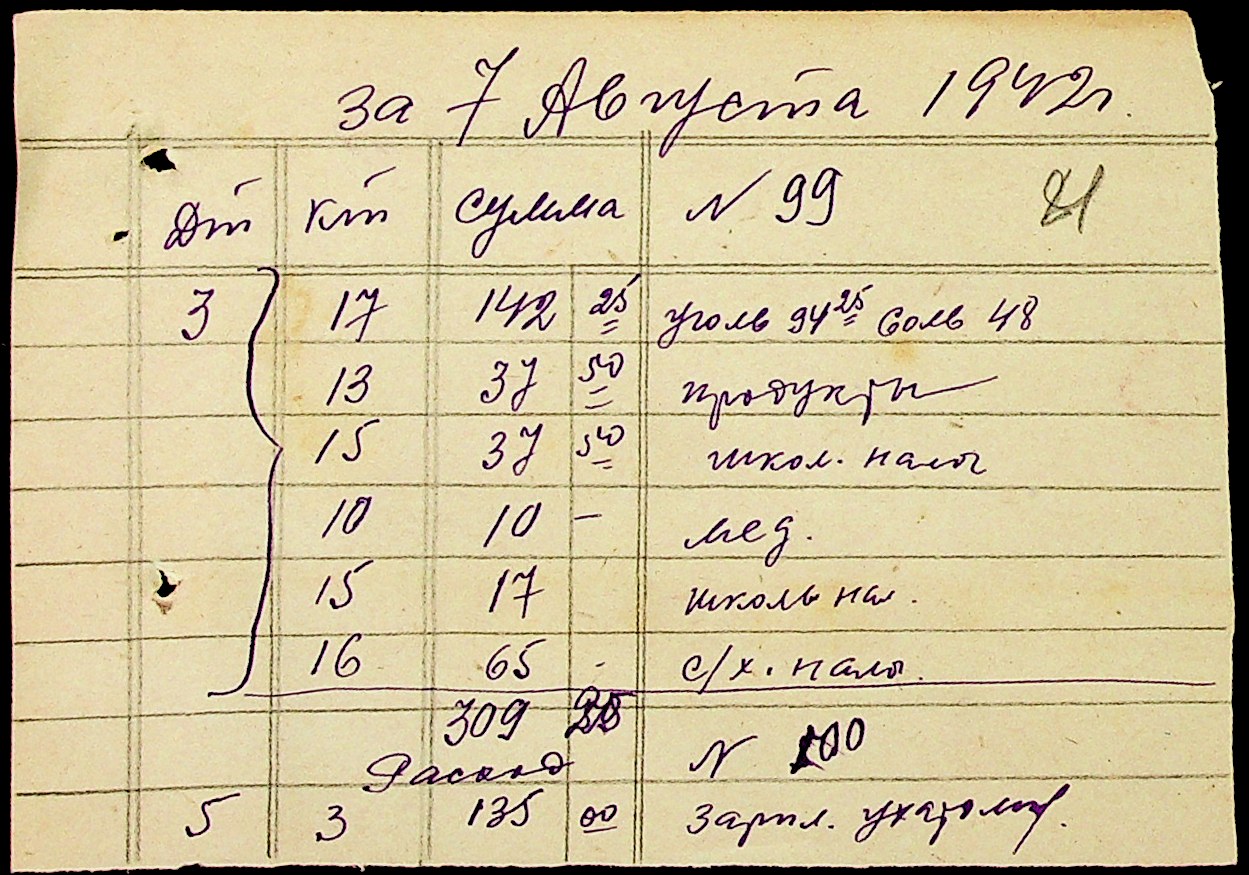 за 7 Августа 1942г.
Дт Кт Сумма N 99 21
3 17 142 25 уголь 94 25 соль 48
13 37 50 продукты
15 37 50 школ. налог
10 10 – мед.
15 17 школь нал.
16 65 - с/х. нало.
309 25
Расход N 100
5 3 135 00 зарпл.